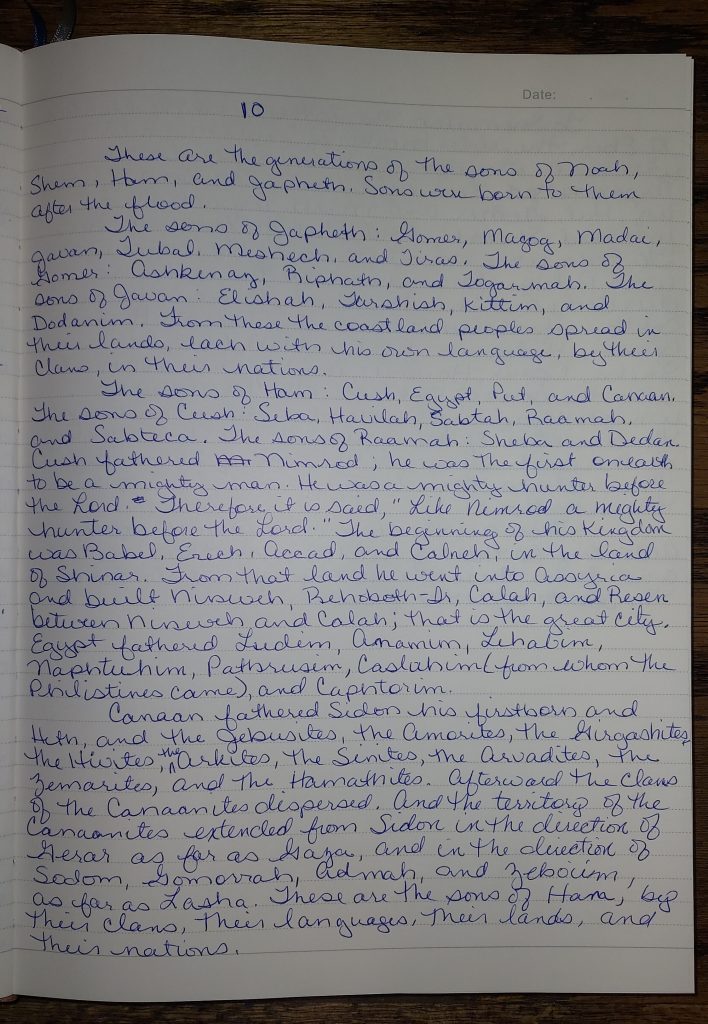 Date:
10
These are the generations of the sons of Noah,
Shem, Ham, and Japheth. Sons were born to them
after the flood.
The sons of Japheth: Gomer, Magog, Madai,
Javan, Tubal, Meshech, and Tiras. The sons of
Gomer: Ashkenaz, Riphath, and Togarmah. The
sons of Javan: Elishah, Tarshish, Kittim, and
Dodanim. From these the coastland peoples spread in
their lands, each with his own language, by their
clans, in their nations.
The sons of Ham: Cush, Egypt, Put, and Canaan.
The sons of Cush: Seba, Havilah, Sabtah, Raamah,
and Sabteca. The sons of Raamah: Sheba and Dedan.
Cush fathered Nimrod; he was the first on earth
to be a mighty man. He was a mighty hunter before
the Lord. Therefore, it is said, "Like Nimrod a mighty
hunter before the Lord." The beginning of his Kingdom
was Babel, Erech, Accad, and Calneh, in the land
of Shinar. From that land he went into Assyria
and built Nineveh, Rehoboth-Ir, Calah, and Resen
between Nineveh and Calah; that is the great city.
Egypt fathered Ludim, Anamim, Lehabim,
Naphtuhim, Pathrusim, Casluhim (from whom the
Philistines came), and Caphtorim.
Canaan fathered Sidon his firstborn and
Heth, and the Jebusites, the Amorites, the Girgashites,
the Hivites, the Arkites, the Sinites, the Arvadites, the
Zemarites, and the Hamathites. Afterward the clans
of the Canaanites dispersed. And the territory of the
Canaanites extended from Sidon in the direction of
Gerar as far as Gaza, and in the direction of
Sodom, Gomorrah, Admah, and Zeboiim,
as far as Lasha. These are the sons of Ham, by
their clans, their languages, their lands, and
their nations.